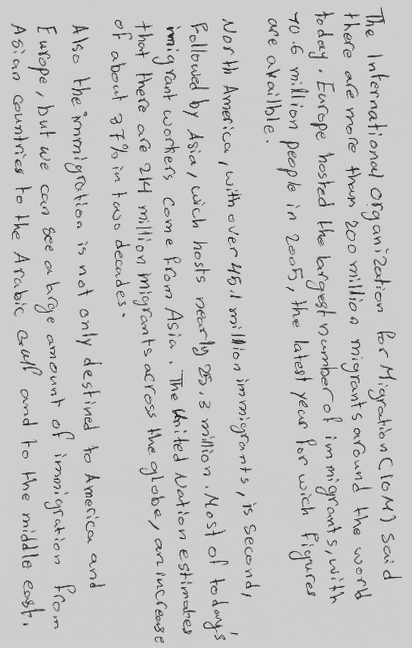 The International Organization for Migration (IOM) said
there are more than 200 million migrants around the world
today. Europe hosted the largest number of immigrants, with
70.6 million people in 2005, the latest year for wich figures
are availble.
North America, with over 45.1 million immigrants, is second,
Followed by Asia, wich hosts nearly 25.3 million. Most of todays'
imigrant workers come from Asia. The United Nation estimates
that there are 214 million migrants across the globe, an increase
of about 37% in two decades.
Also the immigration is not only destined to America and
Europe, but we can see a large amount of immigration from
Asian countries to the Arabic Gulf and to the middle east.